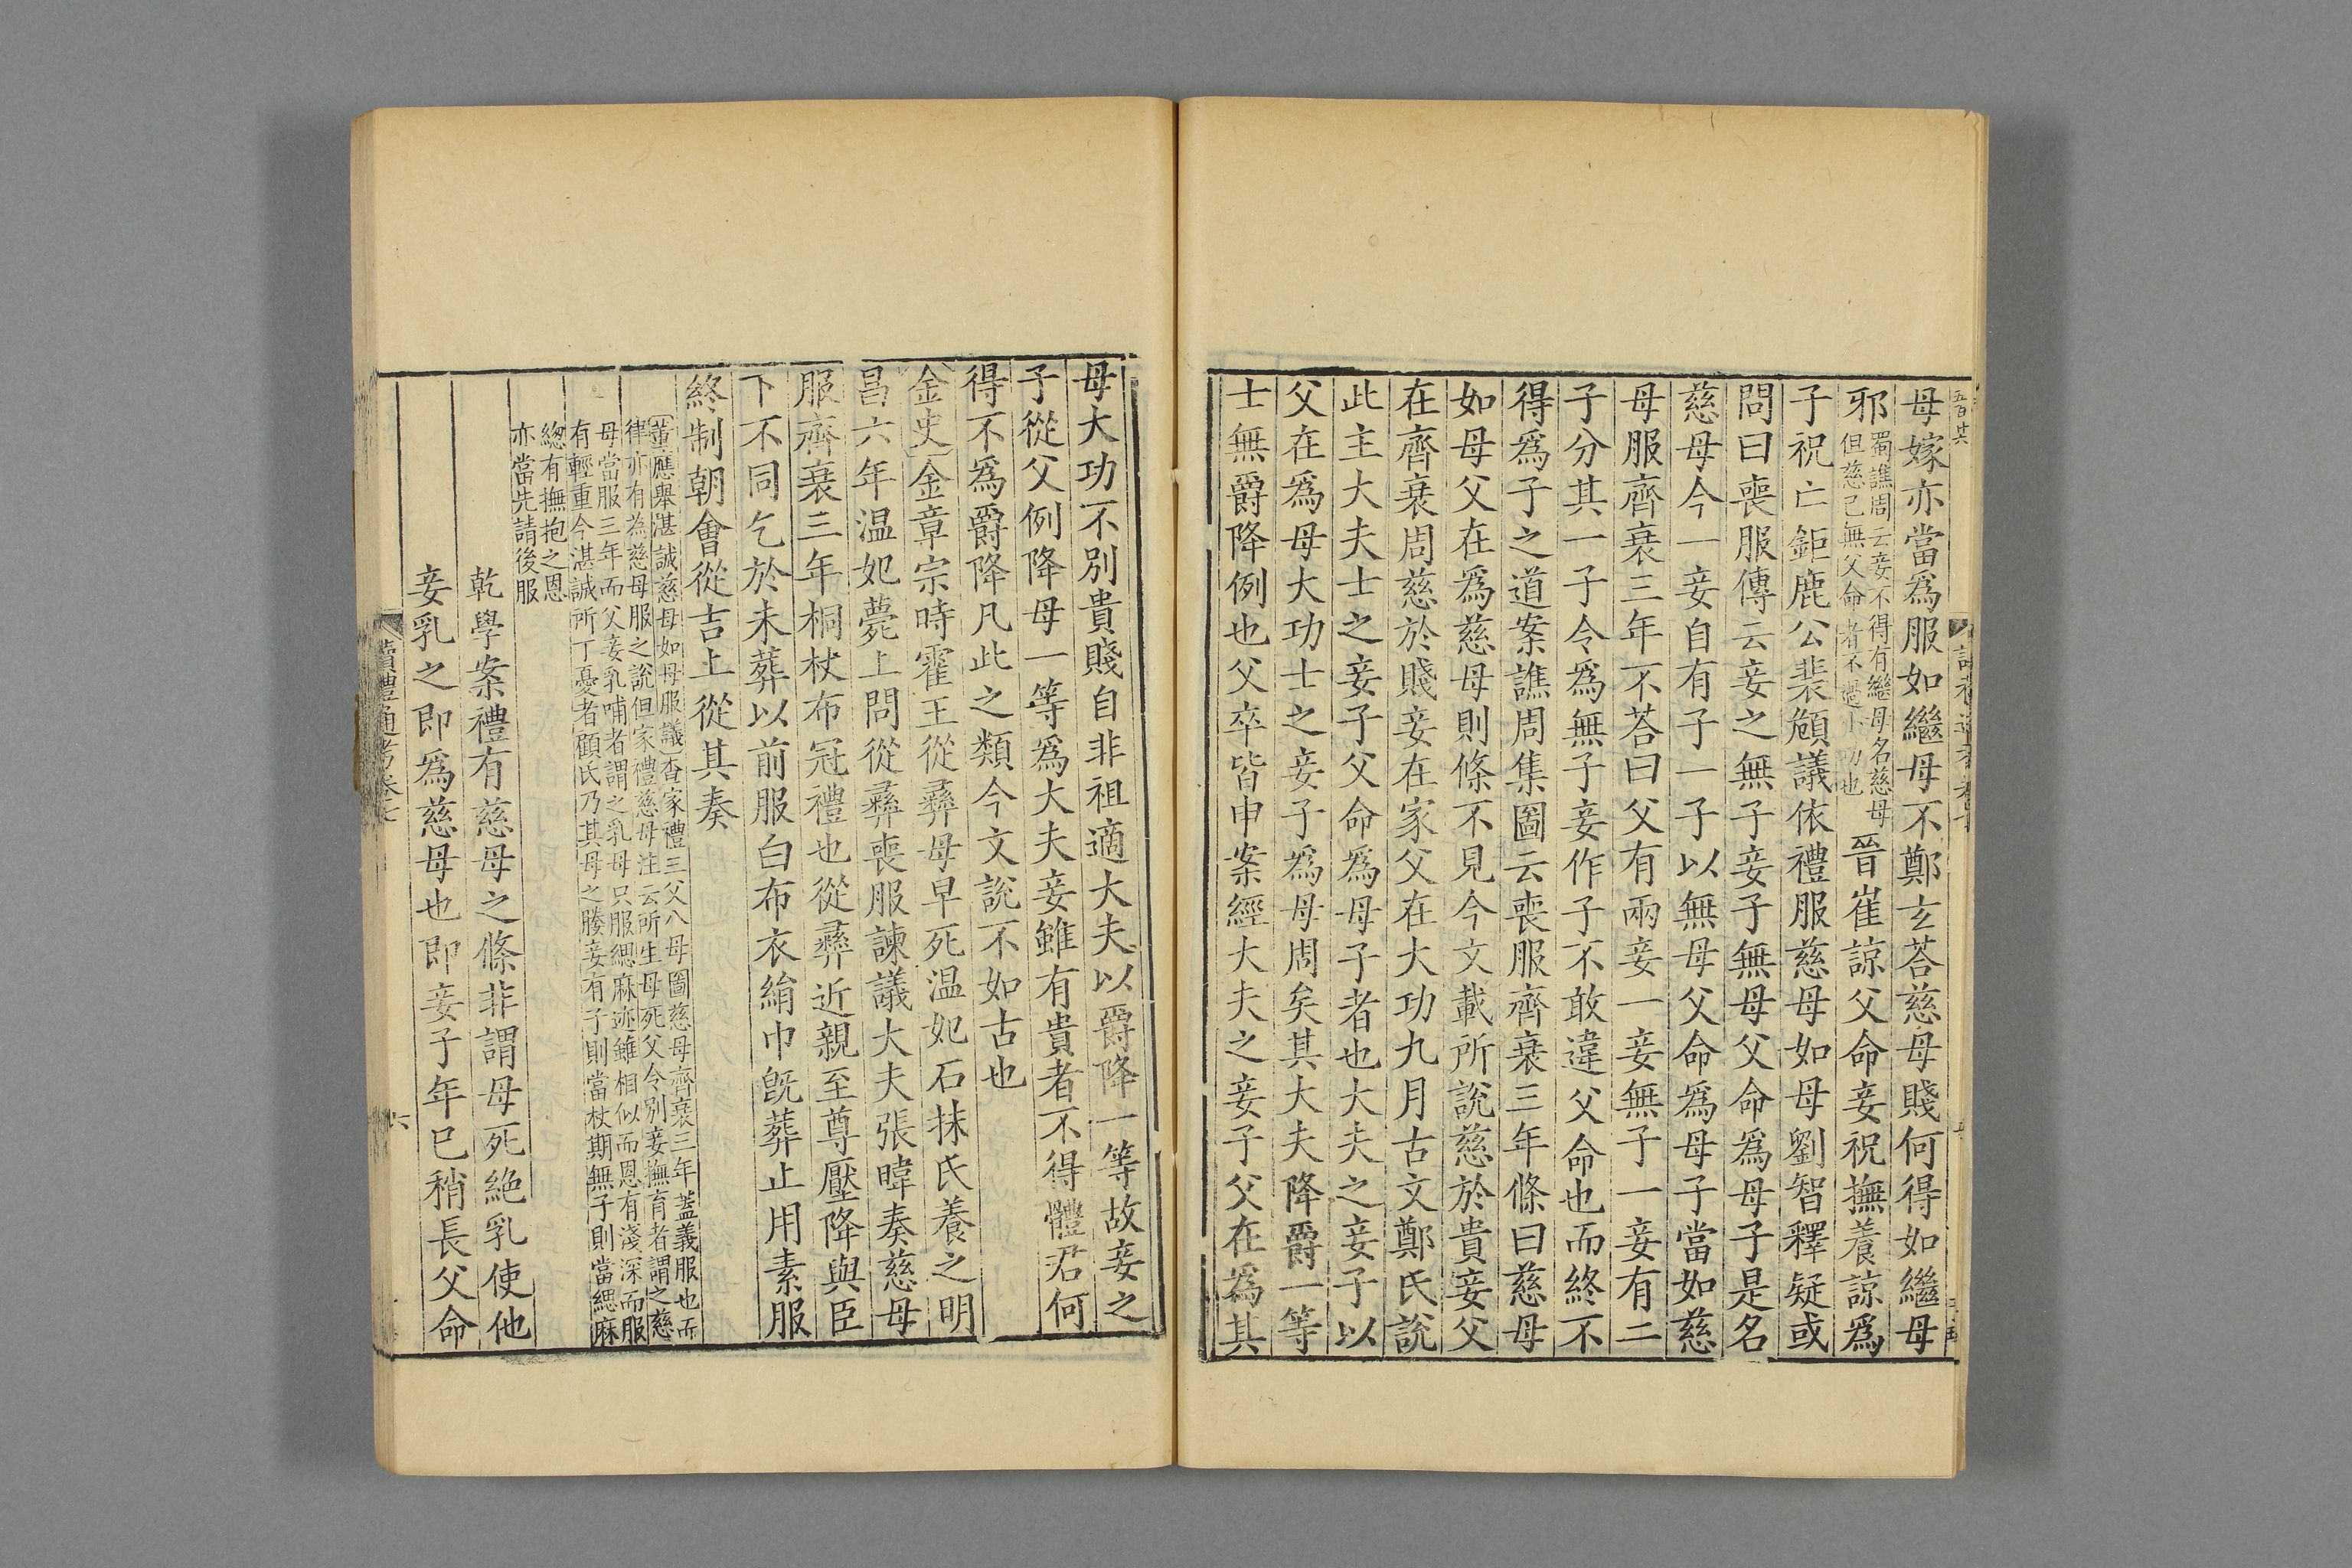 母嫁亦當爲服如繼母不鄭玄荅慈母賤何得如繼母
邪蜀譙周云妾不得有繼母名慈母
但慈己無父命者不
晉崔諒父命妾祝撫養諒爲
子祝亡鉅鹿公裴頠議依禮服慈母如母劉智釋疑或
問曰喪服傳云妾之無子妾子無母父命爲母子是名
慈母今一妾自有子一子以無母父命爲母子當如慈
母服齊衰三年不荅曰父有兩妾一妾無子一妾有二
子分其一子令爲無子妾作子不敢違父命也而終不
得爲子之道案譙周集圖云喪服齊衰三年條曰慈母
如母父在爲慈母則條不見今文載所說慈於貴妾父
在齊衰周慈於賤妾在家父在大功九月古文鄭氏說
此主大夫士之妾子父命爲母子者也大夫之妾子以
父在爲母大功士之妾子爲母周矣其大夫降爵一等
士無爵降例也父卒皆申案經大夫之妾子父在爲其
母大功不別貴賤自非祖適大夫以爵降一等故妾之
子從父例降母一等爲大夫妾雖有貴者不得體君何
得不爲爵降凡此之類今文說不如古也
金史金章宗時霍王從彝母早死温妃石抹氏養之明
昌六年温妃薨上問從彝喪服諫議大夫張暐奏慈母
服齊衰三年桐杖布冠禮也從彝近親至尊壓降與臣
下不同乞於未葬以前服白布衣絹巾旣葬止用素服
終制朝會從吉上從其奏
董應舉湛誠慈母如母服議查家禮三父八母圖慈母齊衰三年蓋義服也而
律亦有為慈母服之說但家禮慈母注云所生母死父令別妾撫育者謂之慈
母當服三年而父妾乳哺者謂之乳母只服緦麻迹雖相似而恩有淺深而服
有輕重今湛誠所丁憂者顧氏乃其母之媵妾有子則當杖期無子則當緦麻
緫有撫抱之恩
亦當先請後服
乾學案禮有慈母之條非謂母死絶乳使他
妾乳之即爲慈母也即妾子年已稍長父命
讀禮通考卷七
六